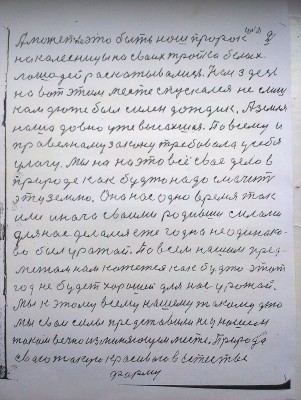 А может это быть наш пророк
на колеснице на своих тройка белых
лошадей раскатывался. Нам здесь
на вот этим месте спускался не слиш
ком дюже был силен дождик. А земля
наша давно уже высохшая. По всему и
правельному закону требовала у себя
влагу. Мы на это всё свое дело в
природе как будто надо смочить
эту землю. Она нас одно время так
или иначе своими родивши силами
для нас делался еже годна не одинако-
во был урожай. По всем нашим пред-
метам нам кажется как будто этот
год не будет хороший для нас урожай.
Мы к этому всему нашему такому делу
мы свои силы представили и у нашем
таком вечно изменяющем месте. Природа
свою такую красивую в естестве
форму